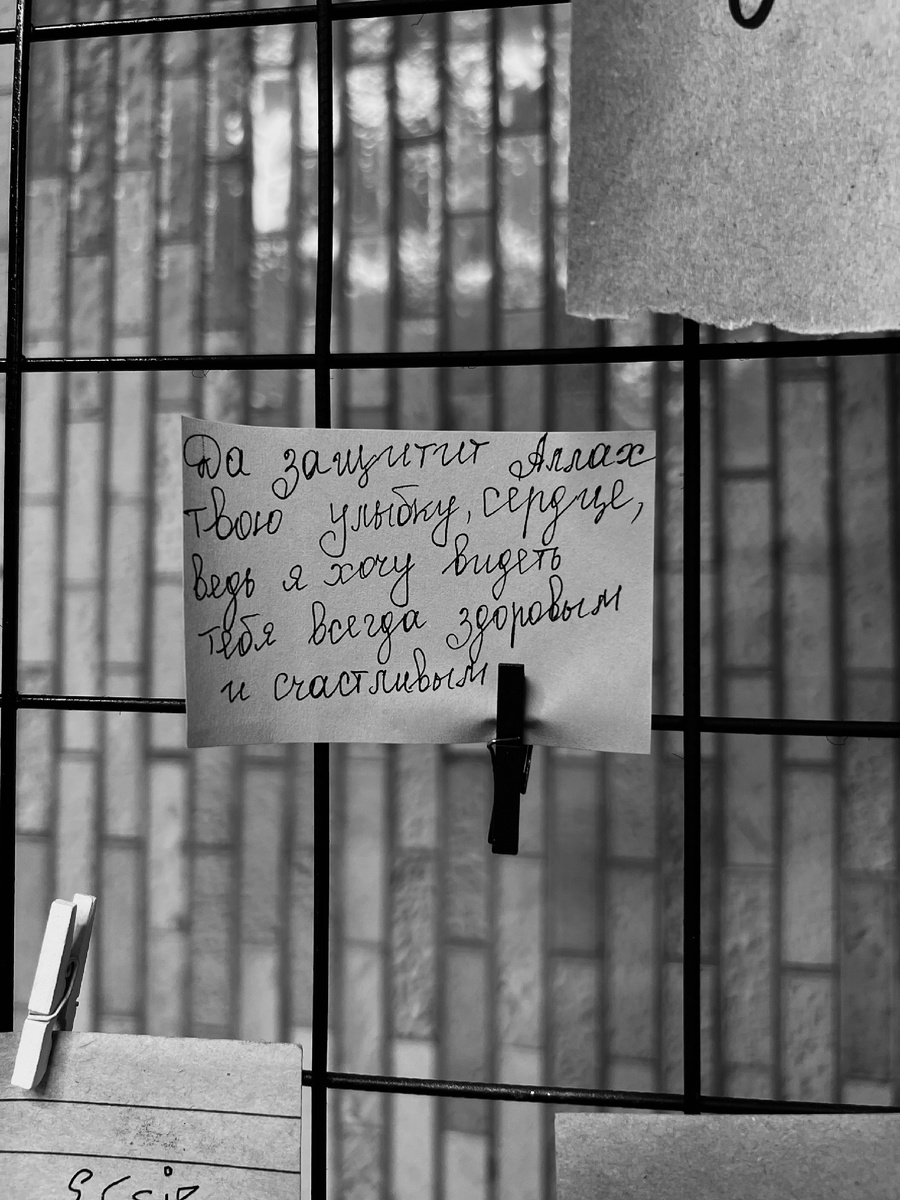 Да защитит Аллах
твою улыбку, сердце,
ведь я хочу видеть
тебя всегда здоровым
и счастливым